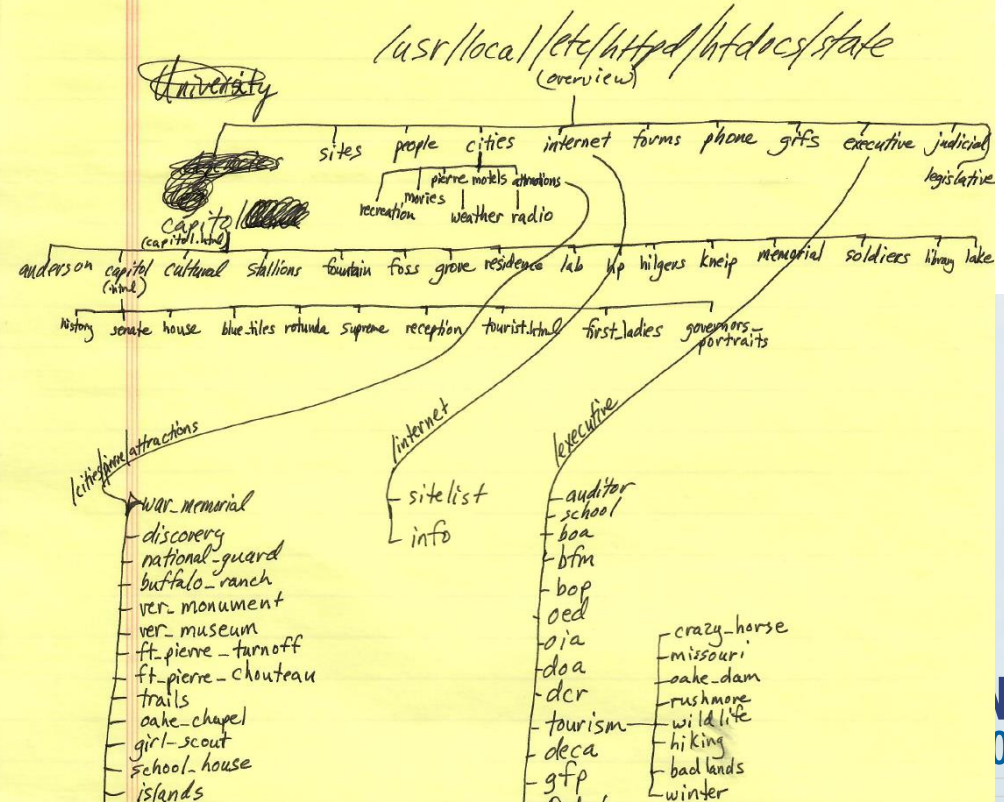 /usr/local/etc/httpd/htdocs/state
(overview)
University
sites people cities internet forms phone gifs executive judicial
legislative
agencies
pierre motels attractions
recreation movies weather radio
capitol
(capitol.html)
anderson capitol cultural stallions fountain foss grove residence lab hp hilgers kneip memorial soldiers library lake
(.html)
history senate house blue_tiles rotunda supreme reception tourist.html first_ladies governors_
portraits
/cities/pierre/attractions
war_memorial
discovery
national_guard
buffalo_ranch
ver_monument
ver_museum
ft_pierre_turnoff
ft_pierre_chouteau
trails
oahe_chapel
girl_scout
school_house
islands
/internet
sitelist
info
/executive
auditor
school
boa
bfm
bop
oed
oja
doa
dcr
tourism
deca
gfp
crazy_horse
missouri
oahe_dam
rushmore
wildlife
hiking
badlands
winter